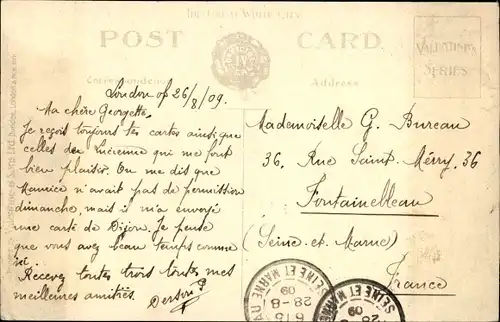 The Great White City
POST CARD
Correspondence
Address
VALENTINE'S SERIES
London of 26/8/09.
Ma chère Georgette,
Je reçois toujours tes cartes ainsi que
celles de Lucienne qui me font
bien plaisir. On me dis que
Maurice n'avait pas de permission
dimanche, mais il m'a envoyé
une carte de Dijon. Je pense
que vous avez beau temps comme
ici
Recevez toutes trois toutes mes
meilleures amitiés.
Mademoiselle G. Bureau
36, Rue Saint-Mérry, 36
Fontainebleau
(Seine-et-Marne)
France
SEINE ET MARNE
6 15
28-8
09
SEINE ET MARNE
28
09